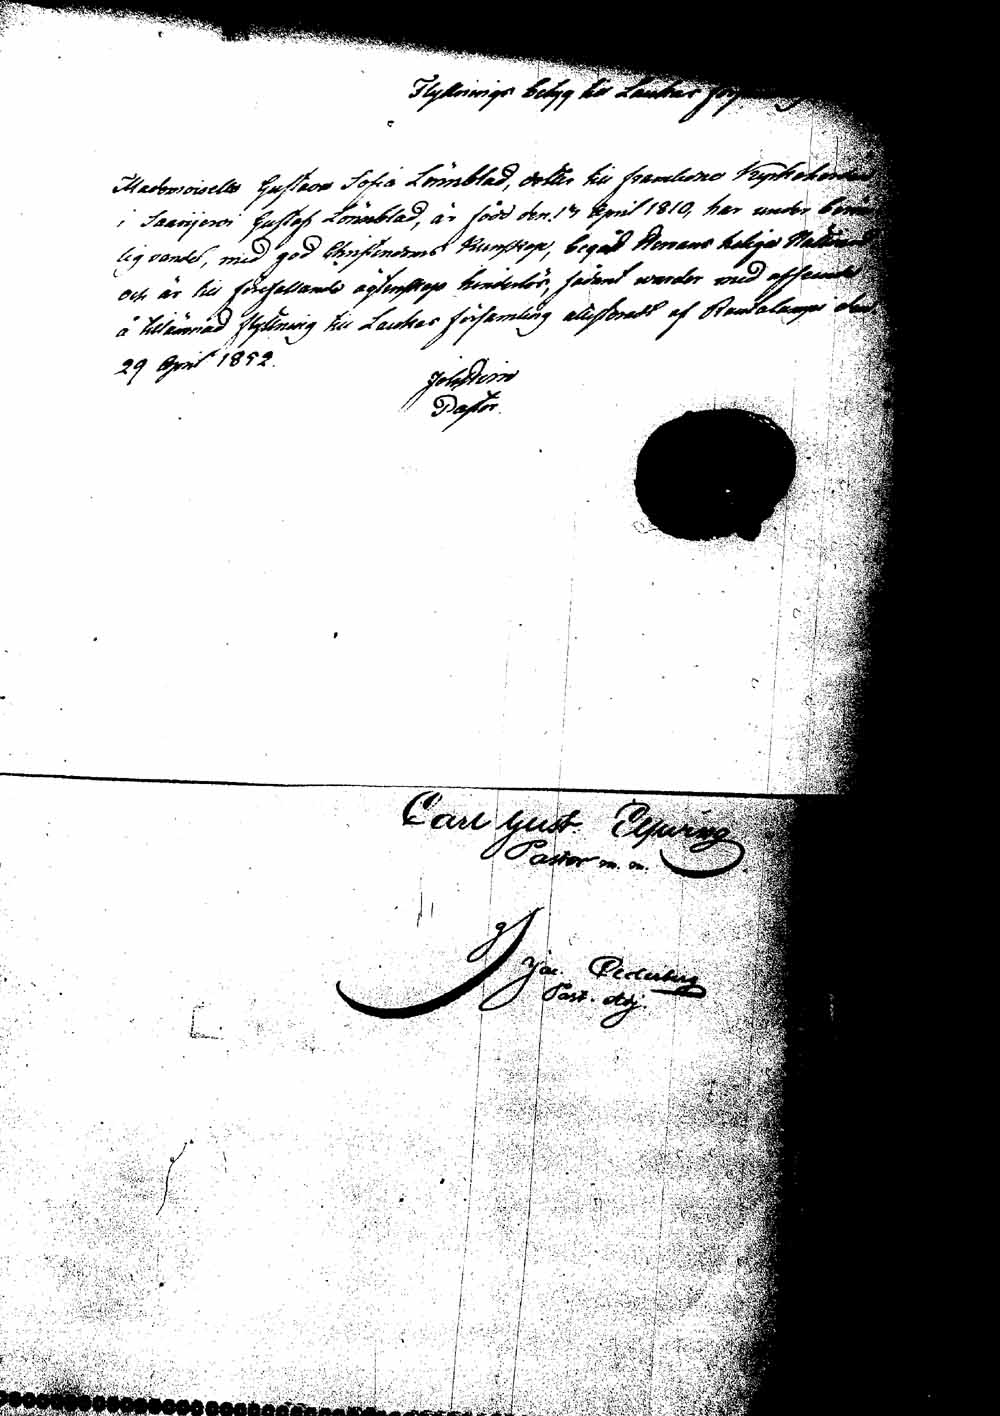 Flyttnings betyg till Laukas
Mademoiselle Gustava Sofia Lönnblad, dotter till framledne Kyrkoherden
i Saarijervi Gustaf Lönnblad, är född den April 1810, har under
lig vandel, med god Christendoms Kunskap, begått Herrans heliga Nattvard
och är till förefallande ägtenskap hinderlös, sådant warder med afseende
å tillämnad flyttning till Laukas församling attesteradt af Rautalampi den
29 April 1852.
Pastor.
Carl Gust. Elfving
Pastor m. m.
Jac. Cederberg
Past. Adj.